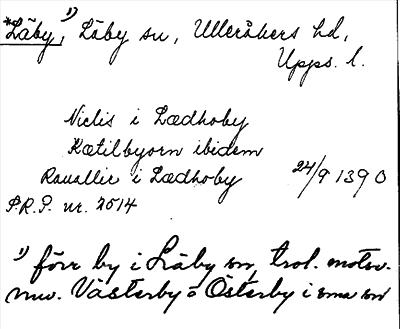 *Läby,¹⁾ Läby sn, Ulleråkers hd,
Upps. l.
Niclis i Lædhoby
Kætilbyorn ibidem
Rauallir i Lædhoby 24/9 1390
P.R.P. nr. 2514
¹⁾ förr by i Läby sn, trol. motsv.
nuv. Västerby o Österby i sma sn